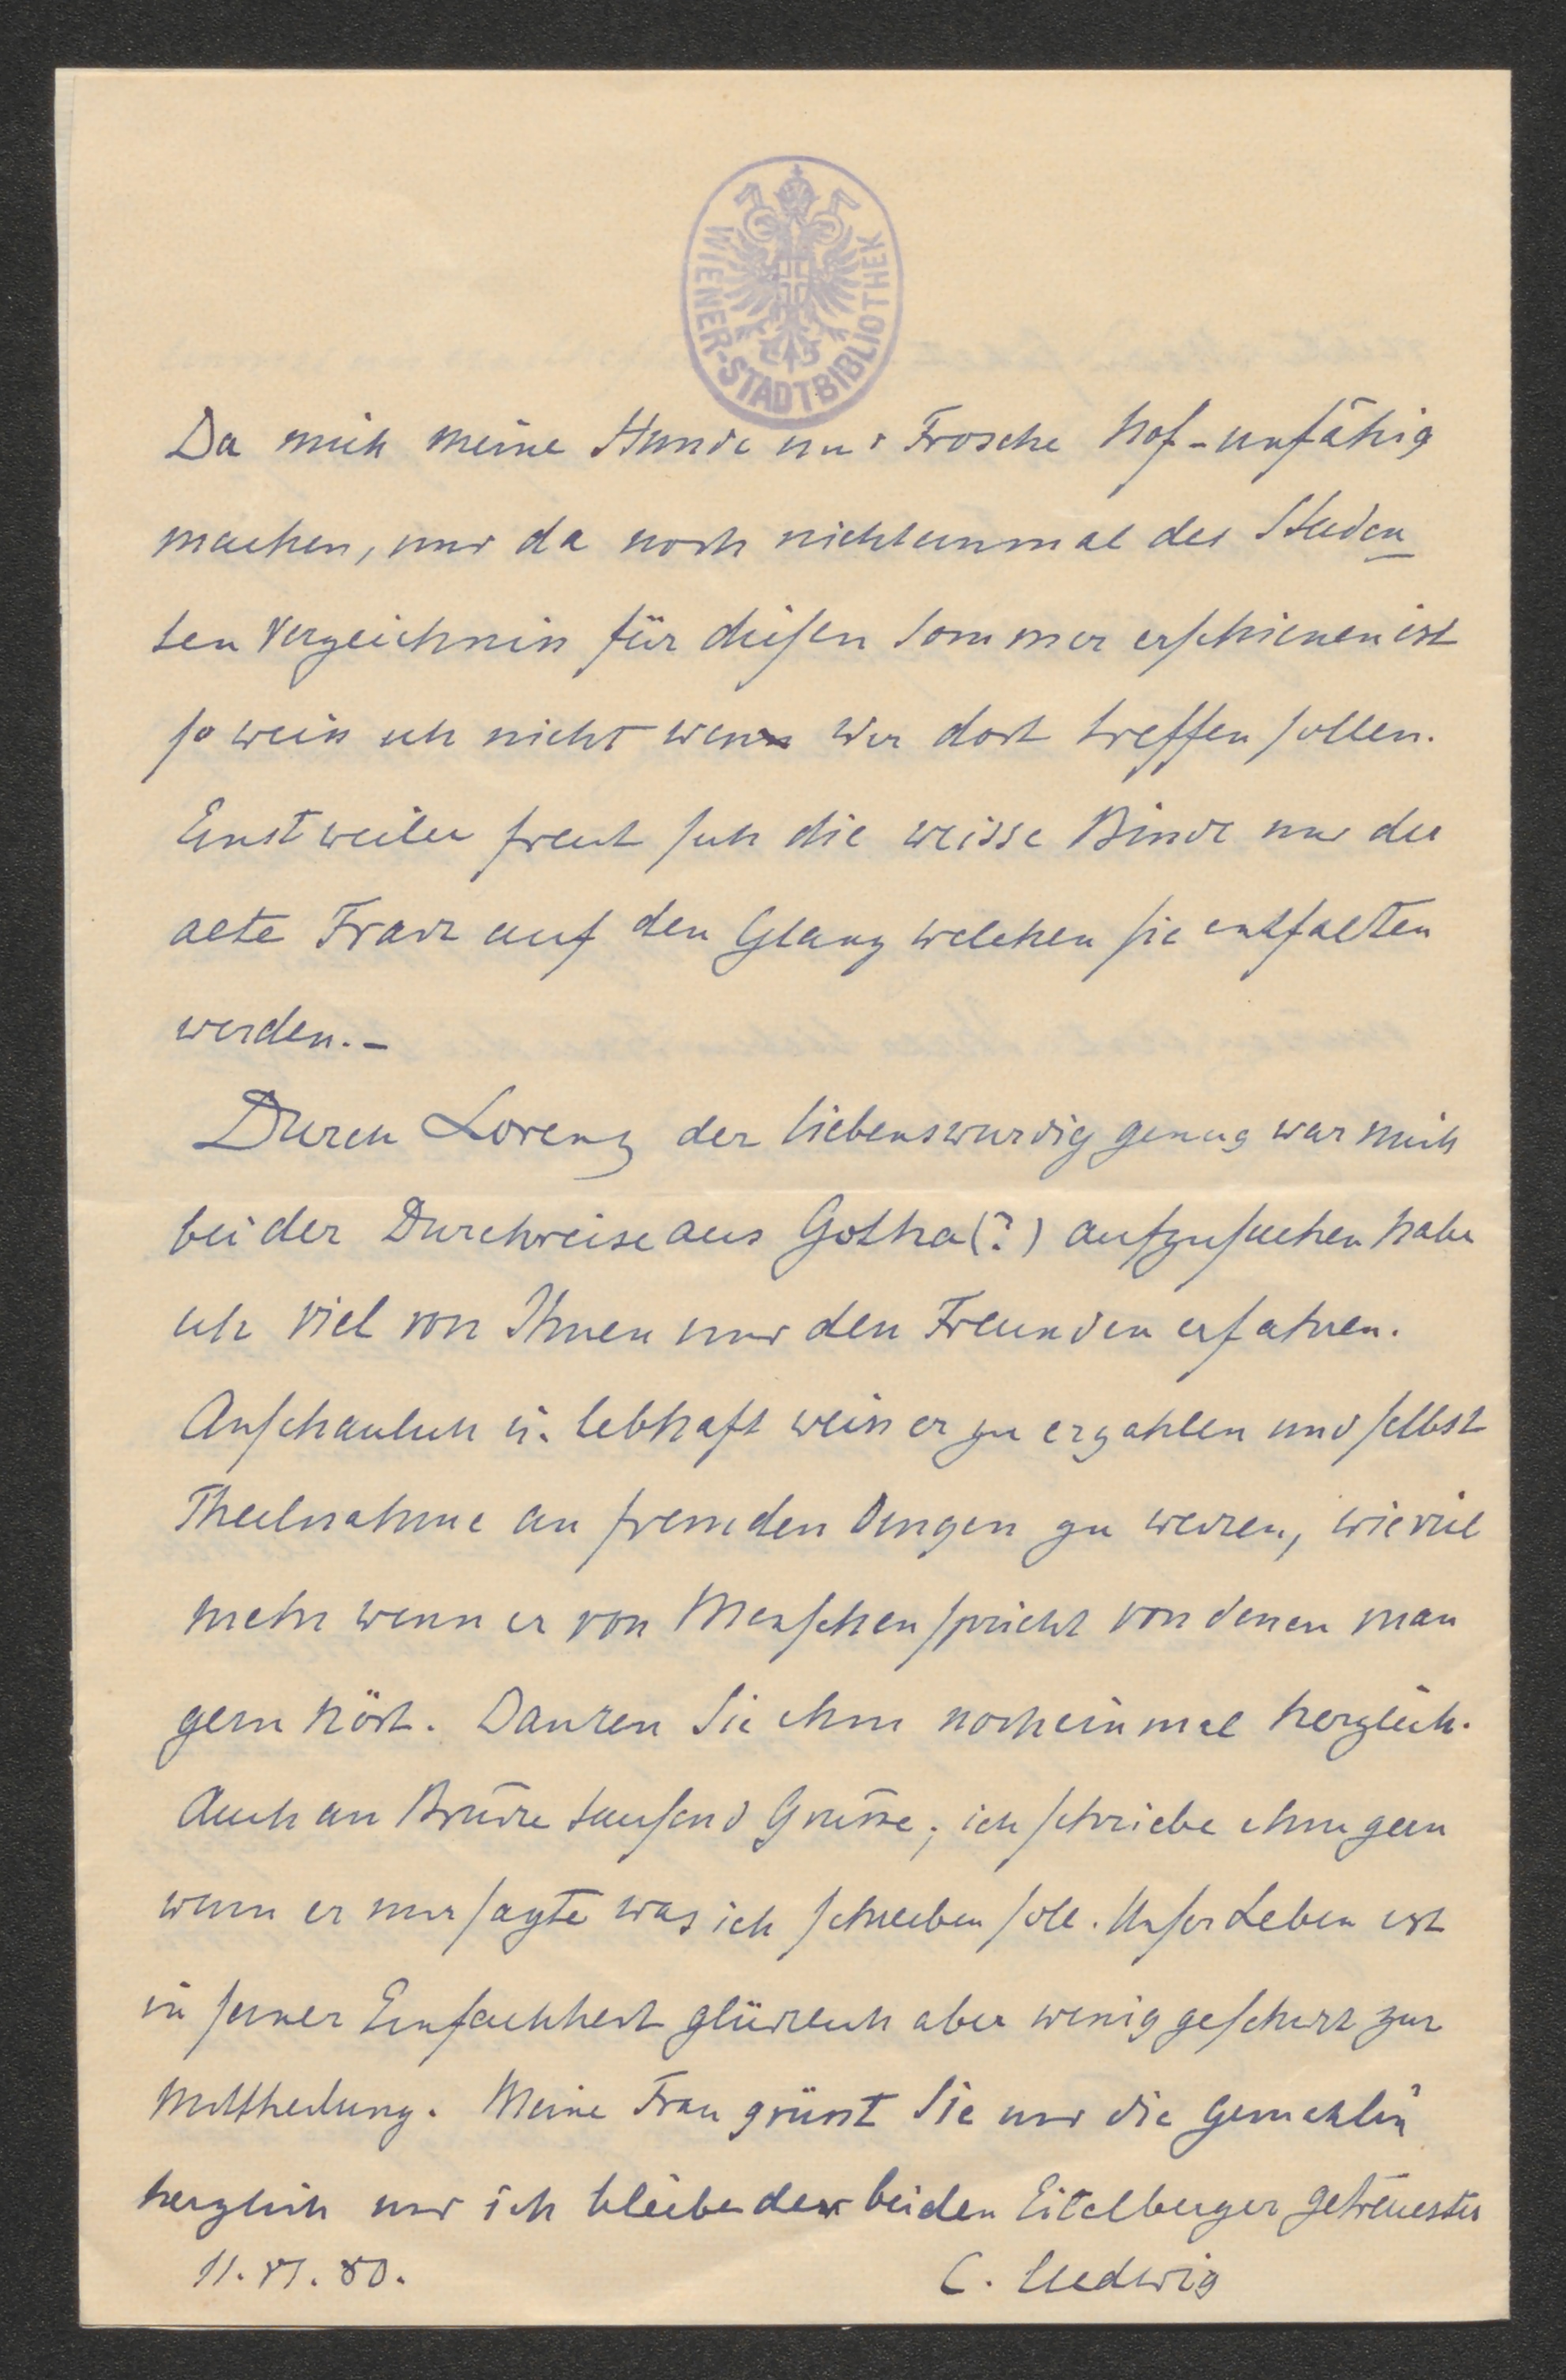 WIENER-STADTBIBLIOTHEK
Da mich meine Hunde und Frosche hof-unfähig
machen, und da noch nichteinmal das Studen
ten Verzeichniss für diesen Sommer erschienen ist
so weiss ich nicht wen wir dort treffen sollen.
Einstweilen freut sich die weisse Binde und der
alte Frack auf den Glanz welchen sie entfalten
werden.-
Durch Lorenz der liebenswurdig genug war mich
bei der Durchreise aus Gotha(?) aufzusuchen habe
ich viel von Ihnen und den Freunden erfahren.
Anschaulich u. lebhaft weiss er zu erzahlen und selbst
Theilnahme an fremden Dingen zu wecken, wieviel
mehr wenn er von Menschen spricht von denen man
gern hört. Danken Sie ihm nocheinmal herzlich.
Auch an Brücke tausend Grüsse; ich schriebe ihm gern
wenn er nur sagte was ich schreiben soll. Unser Leben ist
in seiner Einfachheit glücklich aber wenig geschickt zur
Mittheilung. Meine Frau grüsst Sie und die Gemahlin
herzlich und ich bleibe der beiden Eitelberger getreuester
11.VI.80.
C. Ludwig